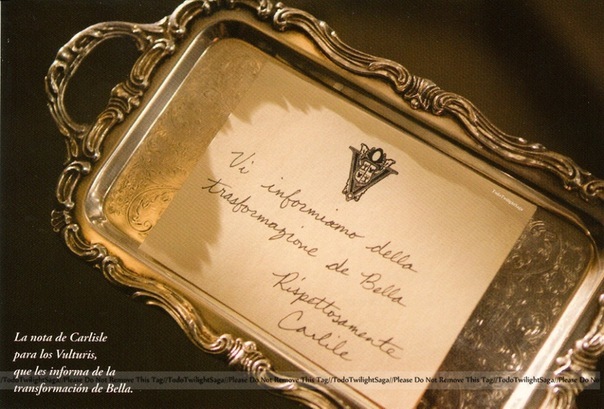 Vi informiamo della
trasformazione de Bella
Rispettosamente
Carlile
La nota de Carlisle
para los Vulturis,
que les informa de la
transformación de Bella.
/TodoTwilightSaga//Please Do Not Remove This Tag//TodoTwilightSaga//Please Do Not Remove This Tag//TodoTwilightSaga//Please Do Not Remove This Tag//TodoTwilightSaga//Please Do